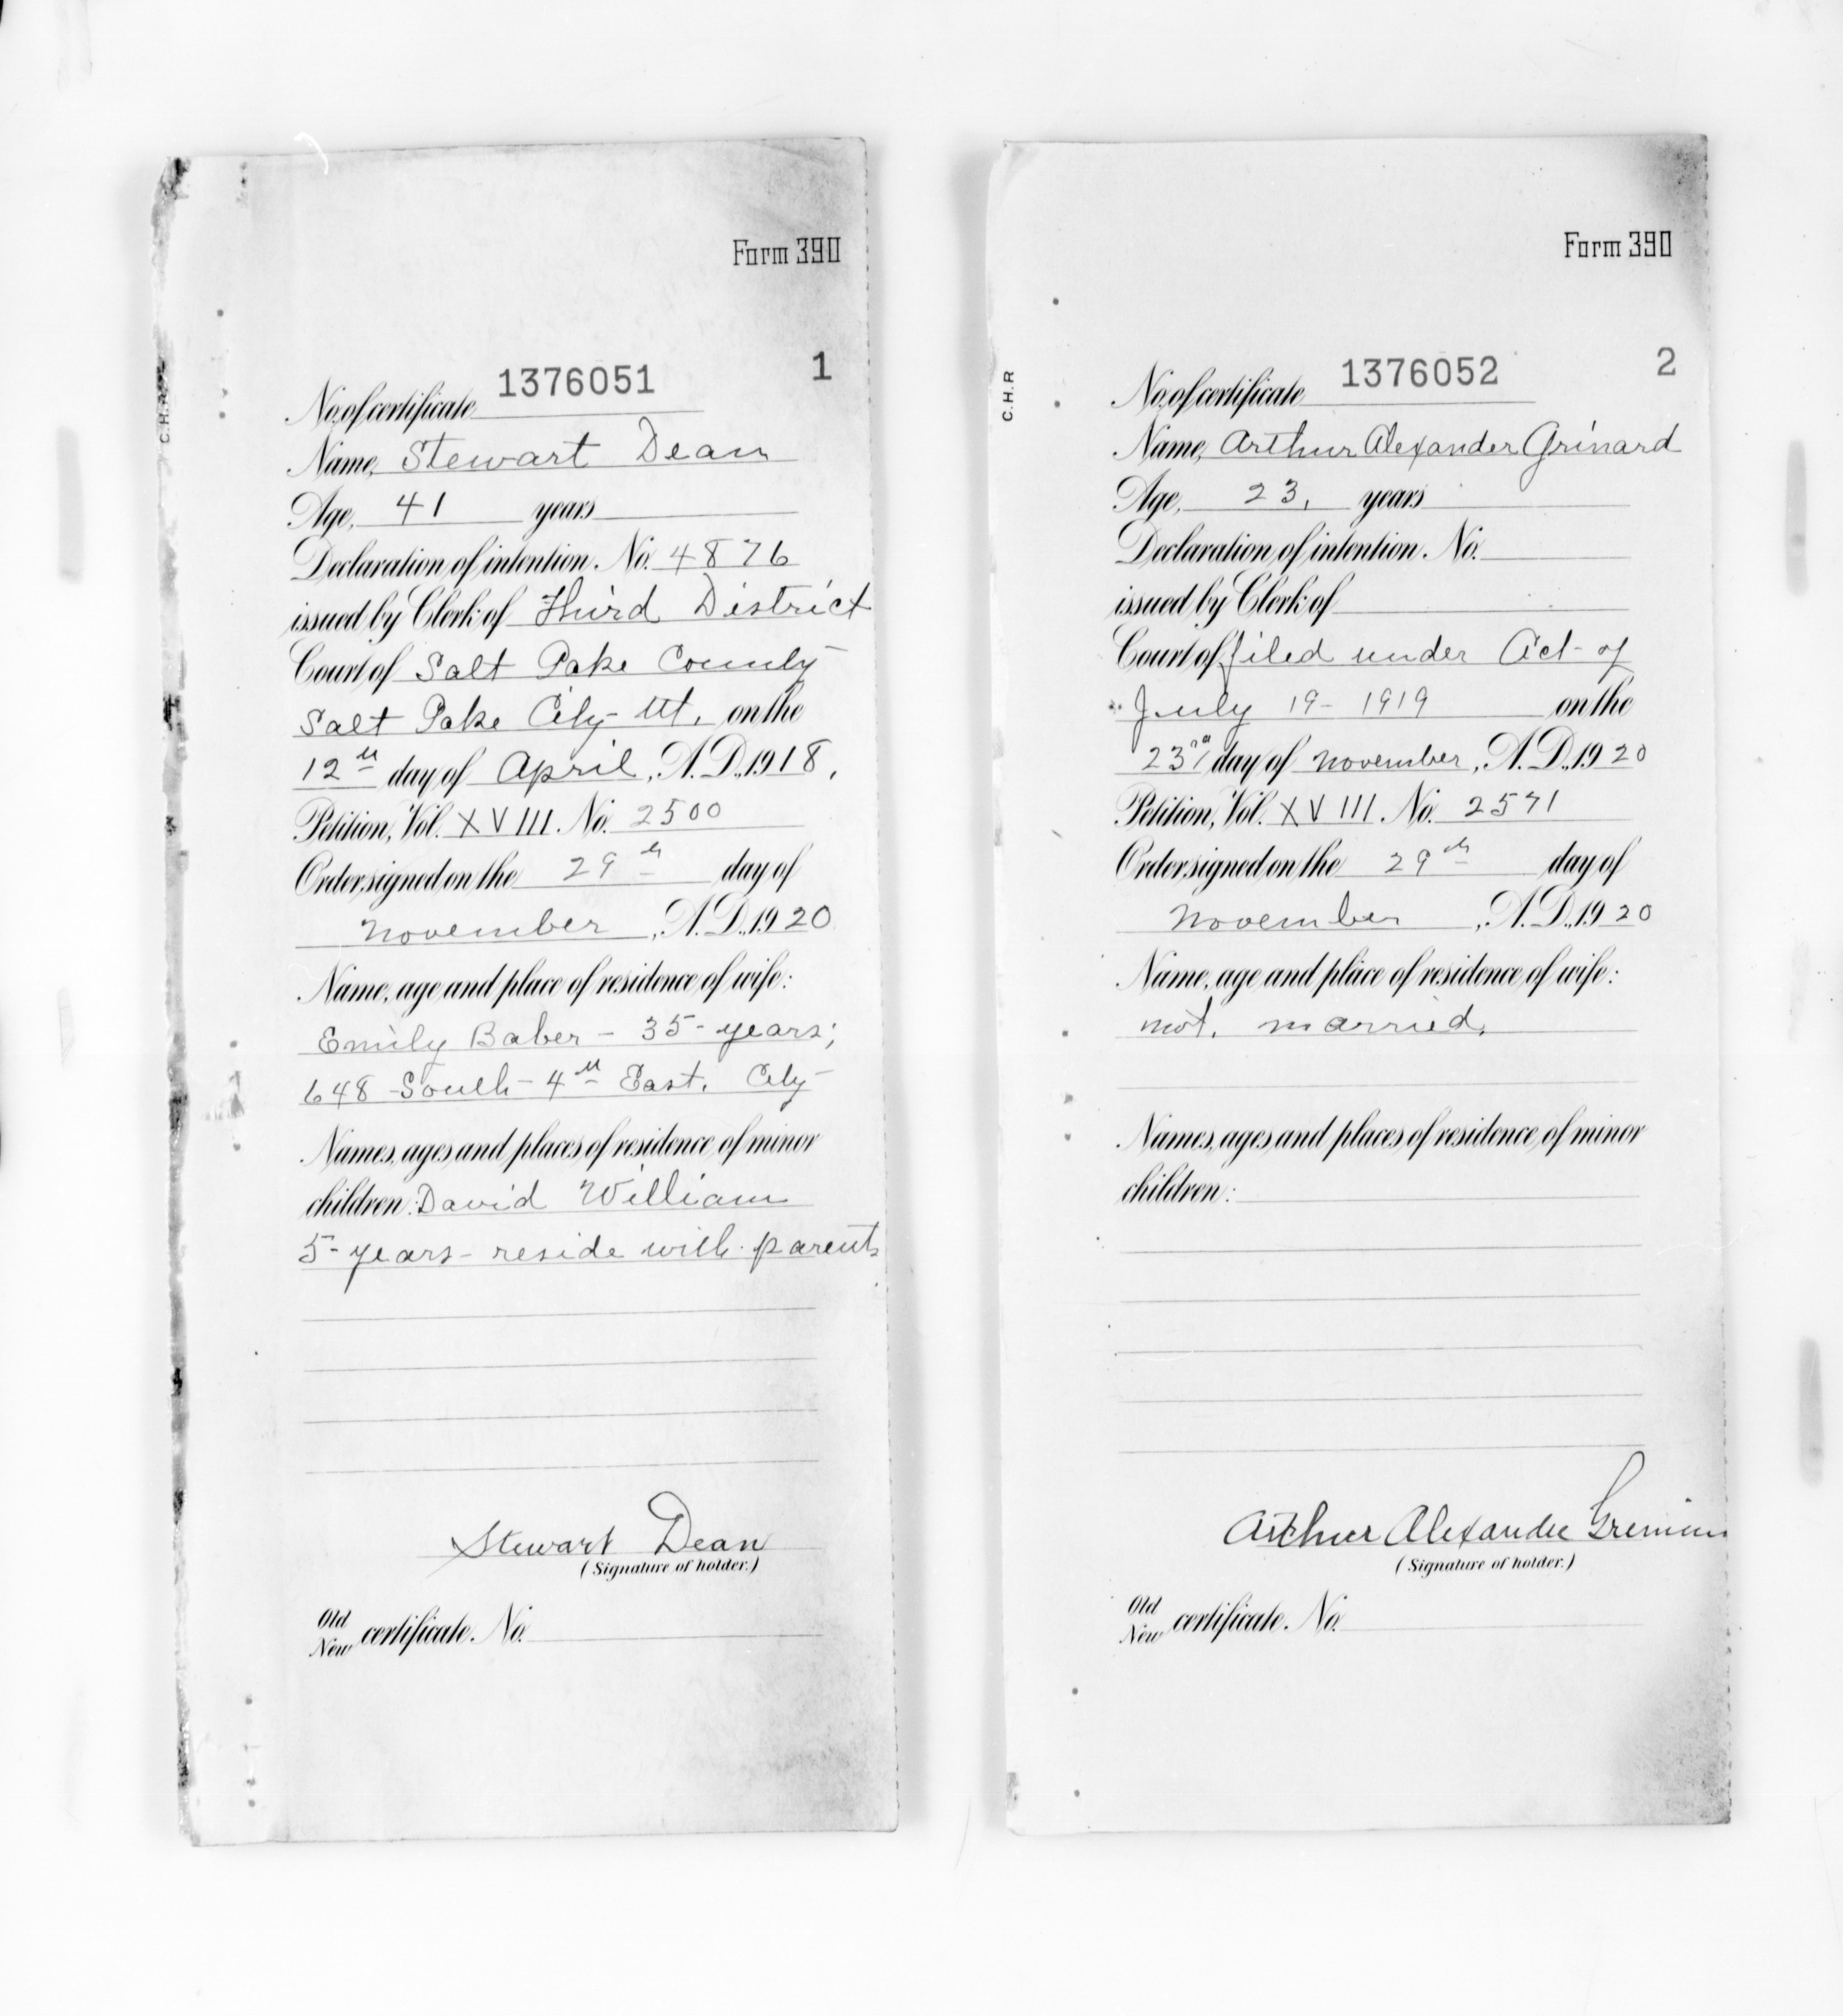 Form 390
1376051 1
No. of certificate
Name, Stewart Dean
Age, 41 years
Declaration of intention. No. 4876
issued by Clerk of Third District
Court of Salt Lake County
Salt Lake City Ut. on the
12th day of April, A.D., 1918.
Petition, Vol. XVIII. No. 2500
Order signed on the 29th day of
November, A.D., 1920
Name, age and place of residence of wife:
Emily Baber - 35 - years;
648 South - 4th East. City
Names, ages and places of residence of minor
children: David William
5 - years - reside with parents
Stewart Dean
(Signature of holder.)
Old
New certificate. No.
C.H.R
Form 390
1376052 2
No. of certificate
Name, Arthur Alexander Grinard
Age, 23, years
Declaration of intention. No.
issued by Clerk of
Court of filed under Act of
July 19 - 1919 on the
23rd day of November, A.D., 1920
Petition, Vol. XVIII. No. 2571
Order signed on the 29th day of
November, A.D., 1920
Name, age and place of residence of wife:
not. married.
Names, ages and places of residence of minor
children:
Arthur Alexander
(Signature of holder.)
Old
New certificate. No.